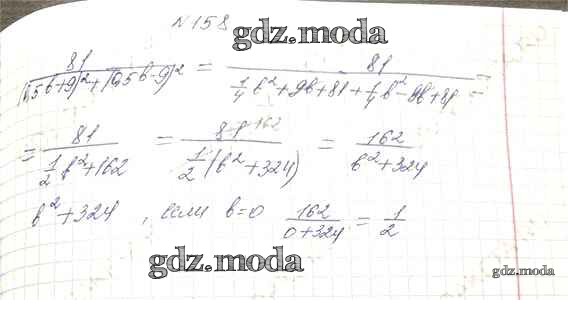 N158
gdz.moda
81/((0,5b+9)²+(0,5b-9)²) = 81/(1/4 b²+9b+81+1/4 b²-9b+81) =
= 81/(1/2 b²+162) = 81 162/(1/2 (b²+324)) = 162/(b²+324)
b²+324 , если b=0 162/(0+324) = 1/2
gdz.moda
gdz.moda